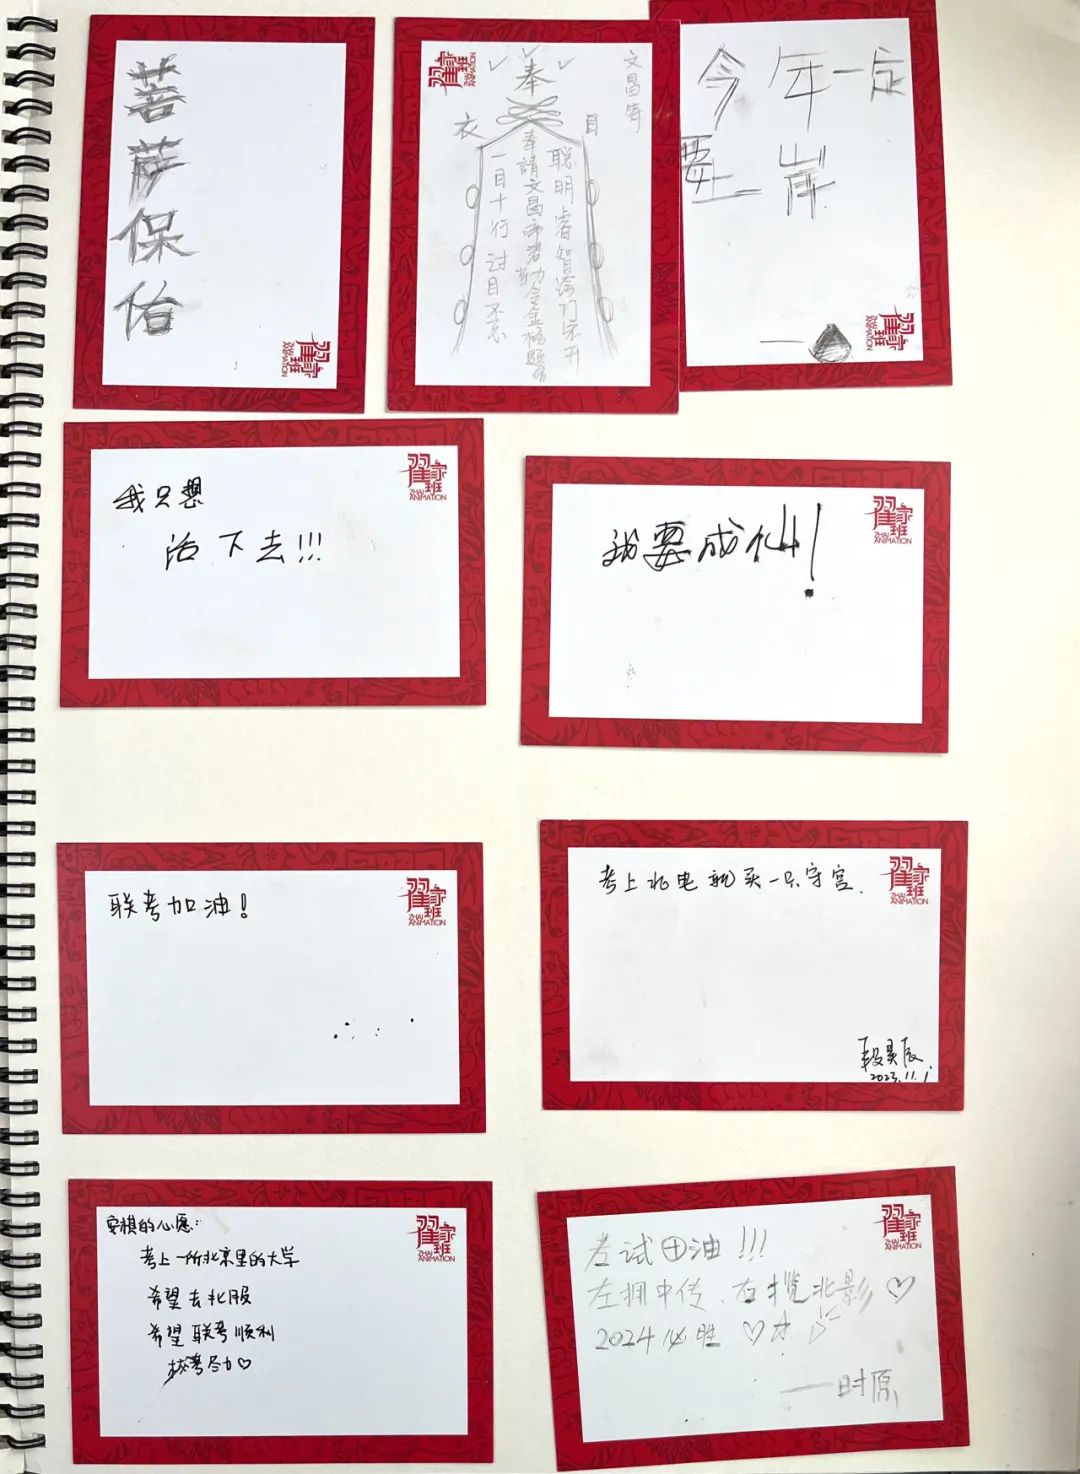 菩萨保佑
翟家班
ZHAI
ANIMATION
翟家班
ZHAI
ANIMATION
奉
文昌符
衣
目
聪明睿智
奉請文昌帝君勅令金榜题名
一目十行过目不忘
今年一定
要上岸
翟家班
ZHAI
ANIMATION
我只想
活下去!!!
翟家班
ZHAI
ANIMATION
我要成仙!
翟家班
ZHAI
ANIMATION
联考加油!
翟家班
ZHAI
ANIMATION
考上北电就买一只守宫.
翟家班
ZHAI
ANIMATION
段昊辰.
2023.11.1.
安祺的心愿:
考上一所北京里的大学
希望去北服
希望联考顺利
校考尽力♡
翟家班
ZHAI
ANIMATION
考试田油!!!
左拥中传、右揽北影♡
2024必胜♡
——时原
翟家班
ZHAI
ANIMATION